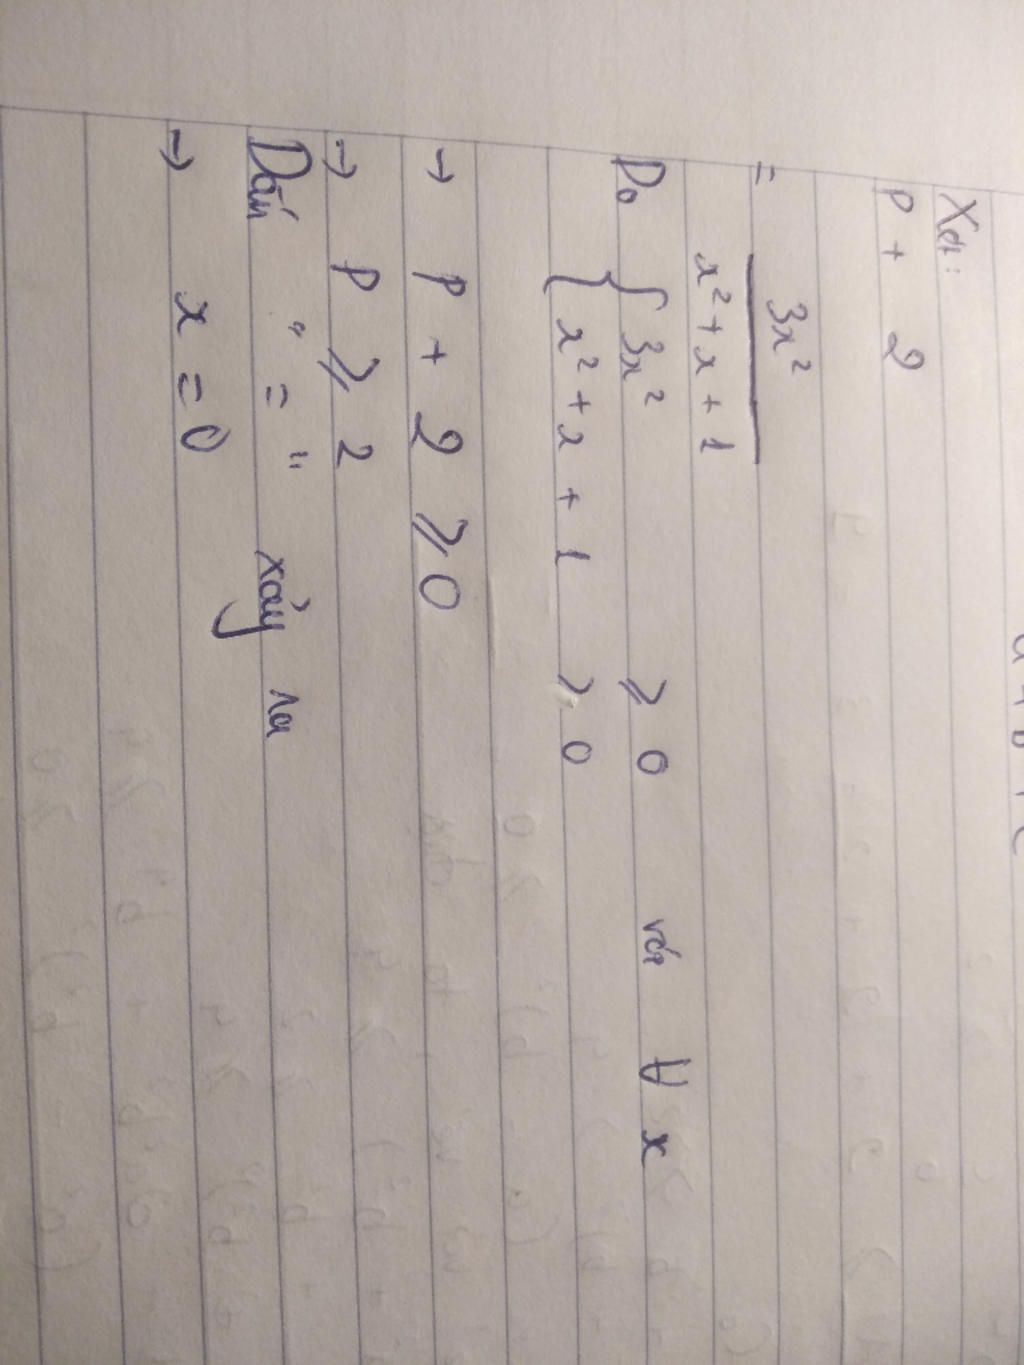 Xét:
P + 2
= 3x²
x² + x + 1
Do { 3x² ⩾ 0 với ∀ x
x² + x + 1 > 0
→ P + 2 ⩾ 0
→ P ⩾ 2
Dấu " = " xảy ra
→ x = 0